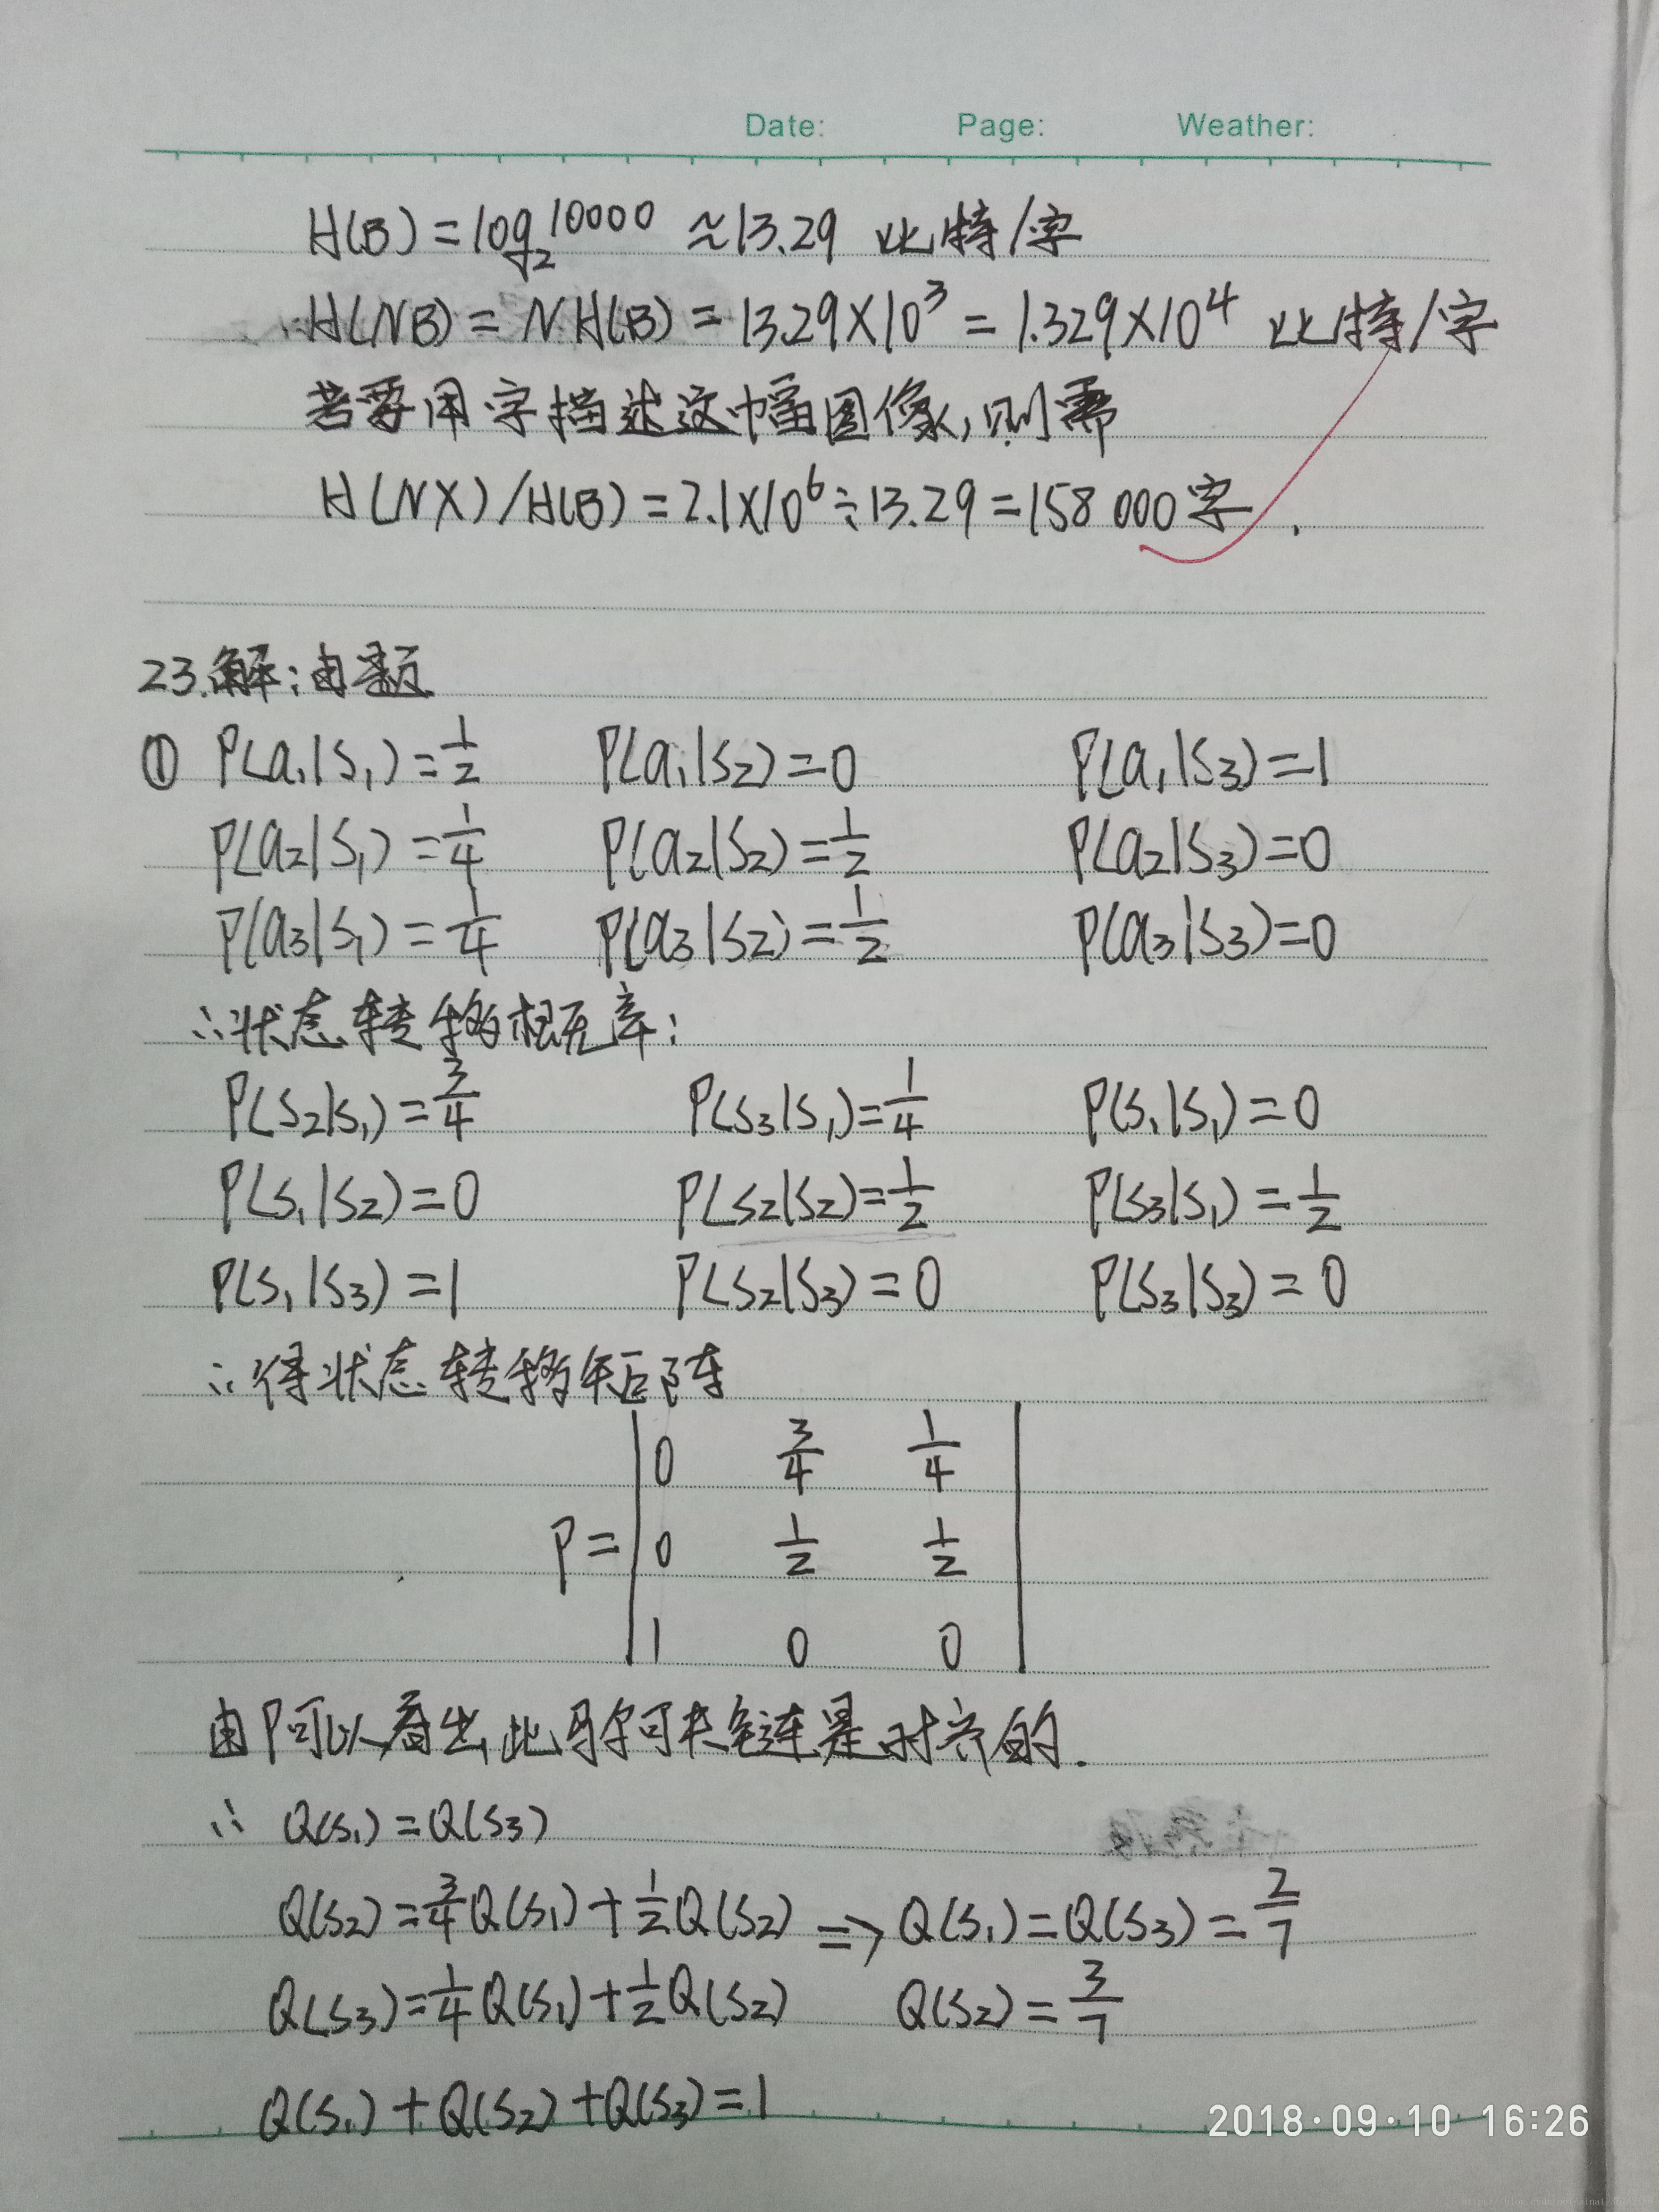 Date: Page: Weather:
H(B)=log₂10000 ≈13.29 比特/字
∴H(NB)=N·H(B)=13.29×10³=1.329×10⁴ 比特/字
若要用字描述这幅图像,则需
H(NX)/H(B)=2.1×10⁶÷13.29=158000字.
23.解:由题
① P(a₁|S₁)=1/2 P(a₁|S₂)=0 P(a₁|S₃)=1
P(a₂|S₁)=1/4 P(a₂|S₂)=1/2 P(a₂|S₃)=0
P(a₃|S₁)=1/4 P(a₃|S₂)=1/2 P(a₃|S₃)=0
∴状态转移概率:
P(S₂|S₁)=3/4 P(S₃|S₁)=1/4 P(S₁|S₁)=0
P(S₁|S₂)=0 P(S₂|S₂)=1/2 P(S₃|S₁)=1/2
P(S₁|S₃)=1 P(S₂|S₃)=0 P(S₃|S₃)=0
∴得状态转移矩阵
0 3/4 1/4
P= 0 1/2 1/2
1 0 0
由P可以看出,此马尔可夫链是时齐的.
∴ Q(S₁)=Q(S₃)
Q(S₂)=3/4Q(S₁)+1/2Q(S₂) ⇒ Q(S₁)=Q(S₃)=2/7
Q(S₃)=1/4Q(S₁)+1/2Q(S₂) Q(S₂)=3/7
Q(S₁)+Q(S₂)+Q(S₃)=1
2018·09·10 16:26